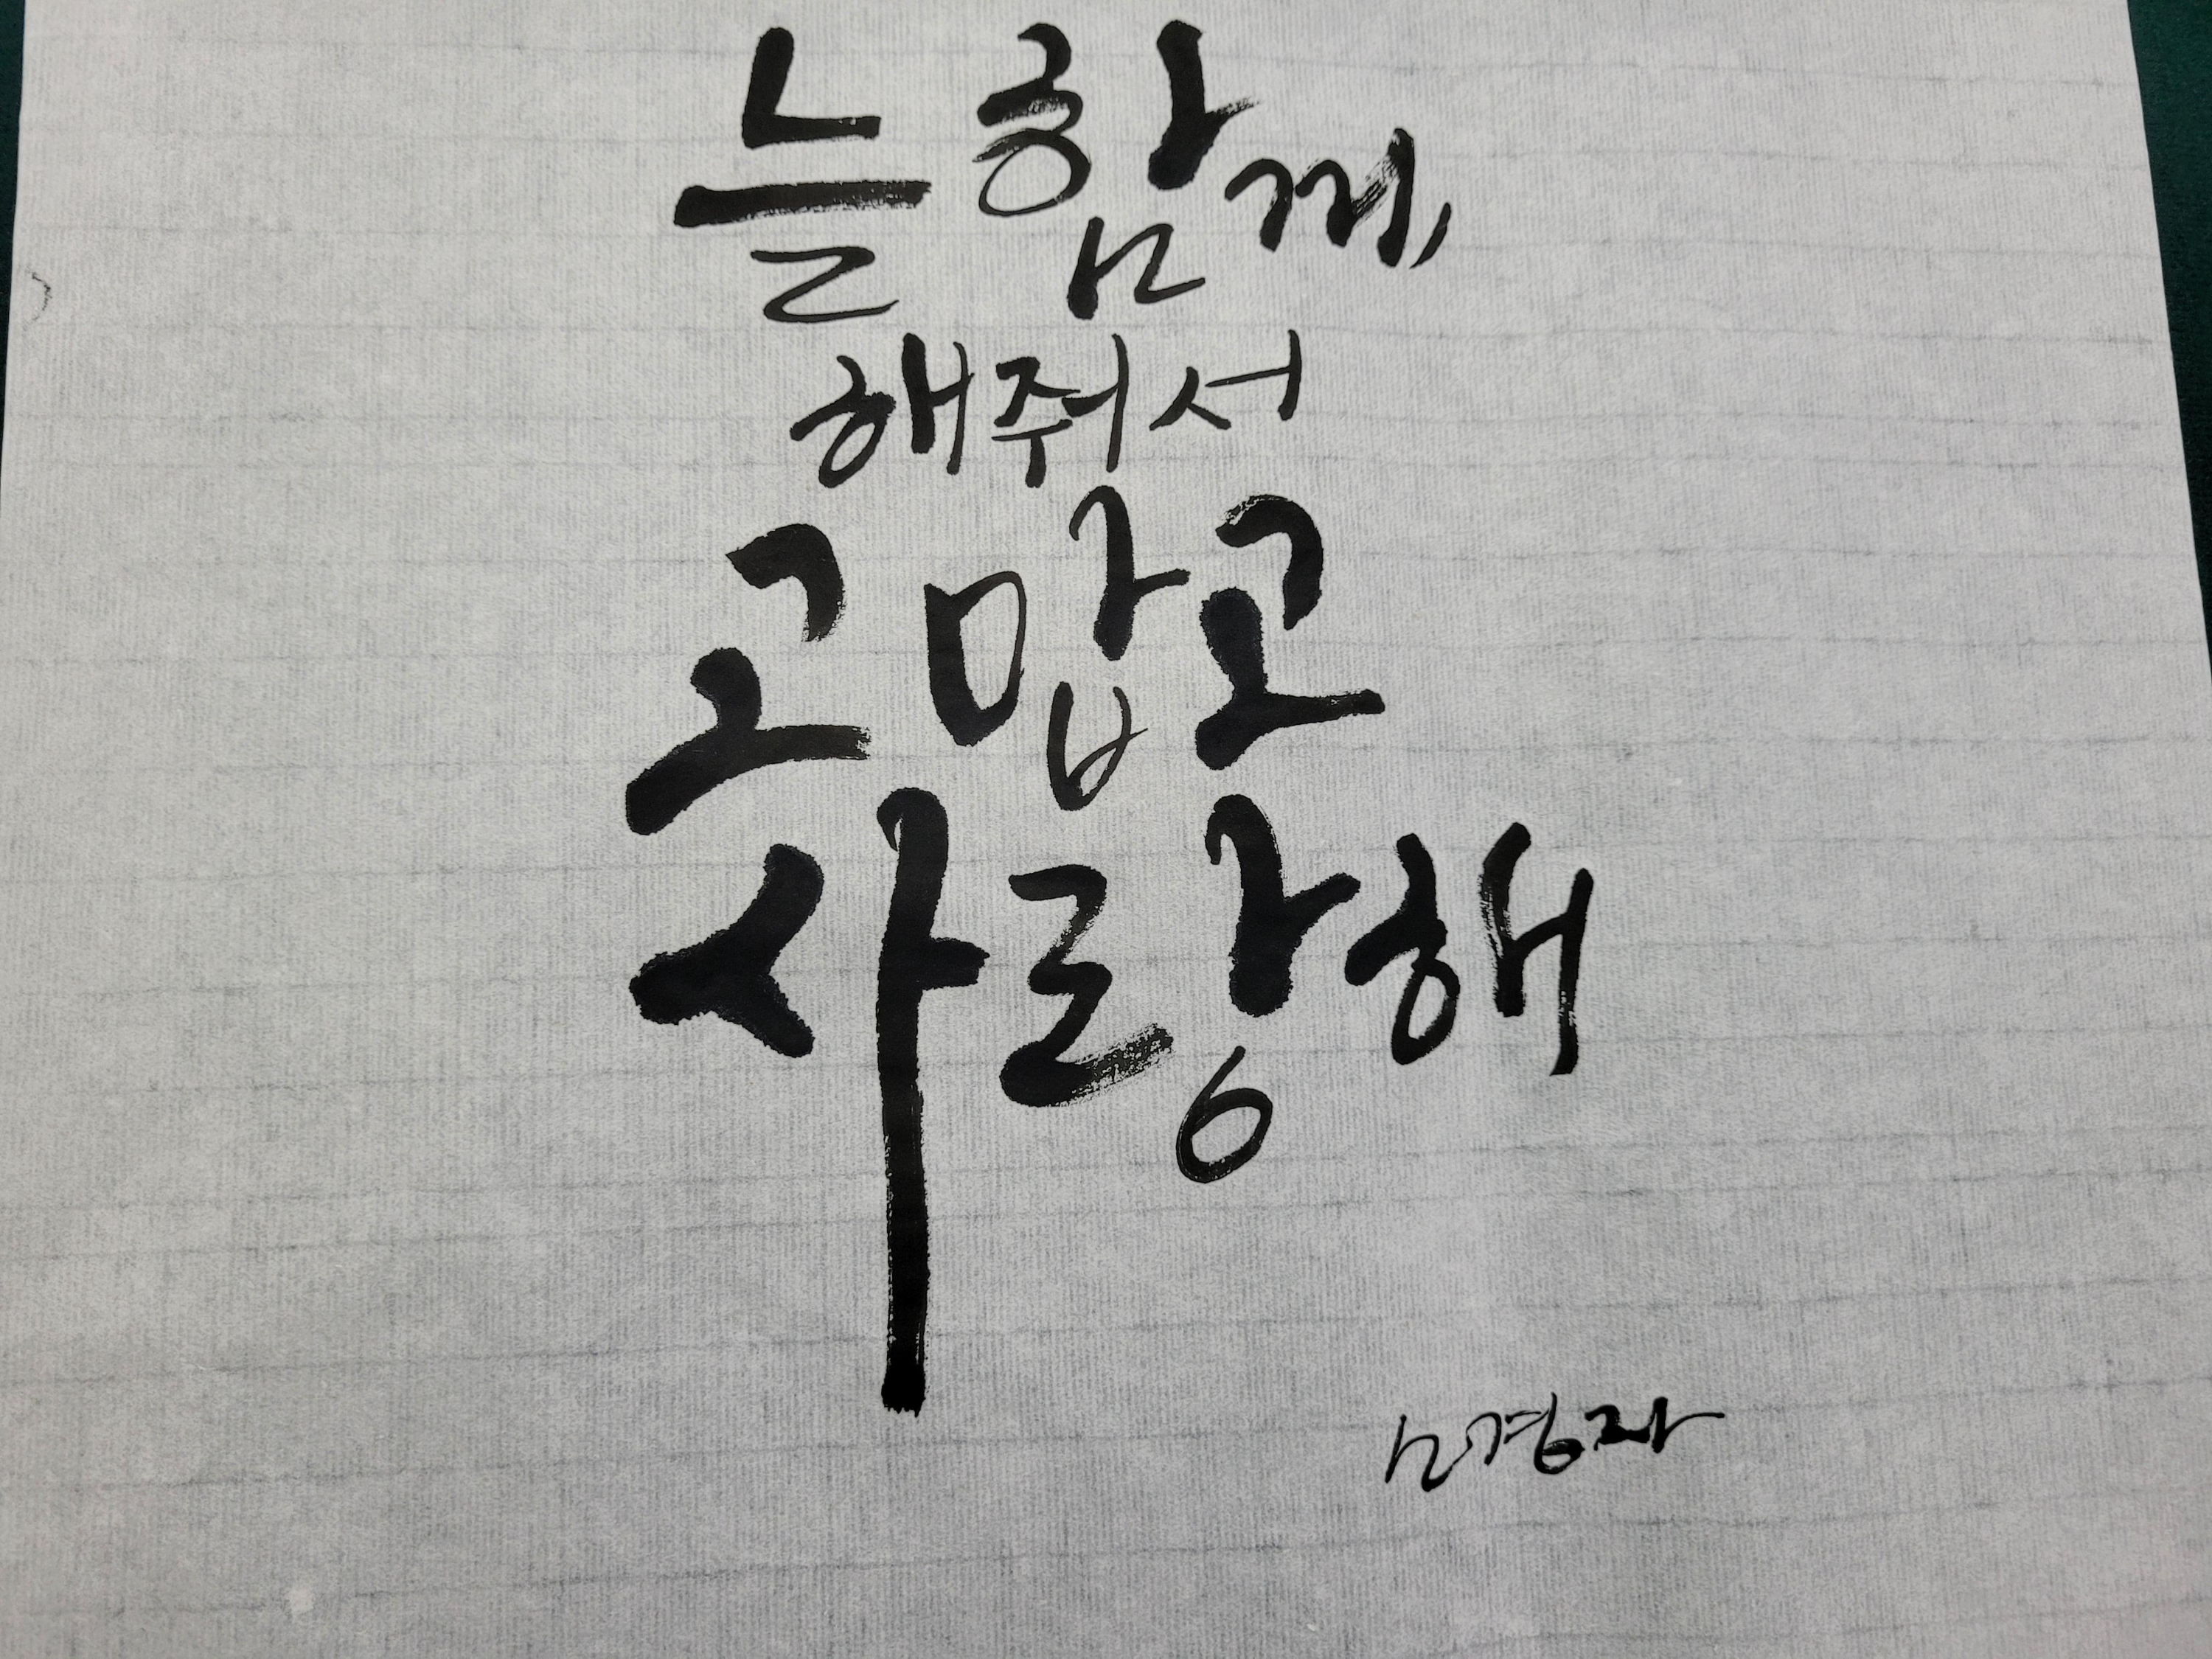 늘 함께,
해줘서
고맙고
사랑해
경자